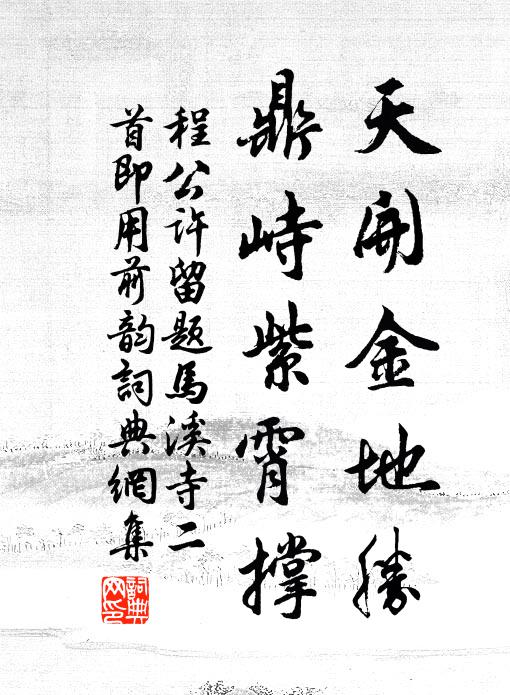 天開金地勝
鼎峙紫霄撐
程公許留題馬溪寺二
首即用前韵詞典網集